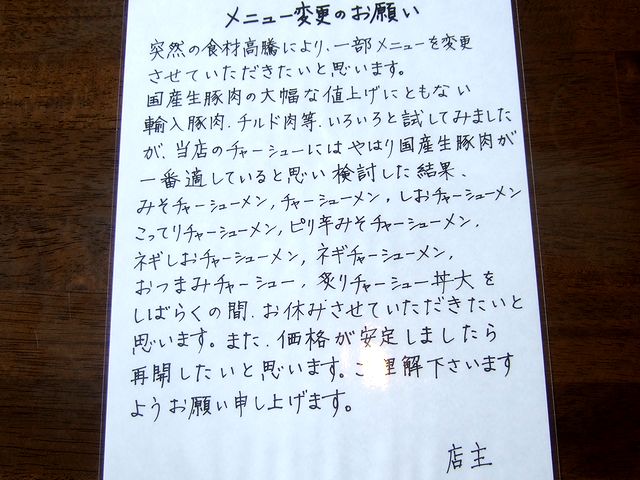 メニュー変更のお願い
突然の食材高騰により、一部メニューを変更
させていただきたいと思います。
国産生豚肉の大幅な値上げにともない
輸入豚肉、チルド肉等、いろいろと試してみました
が、当店のチャーシューにはやはり国産生豚肉が
一番適していると思い検討した結果、
みそチャーシューメン、チャーシューメン、しおチャーシューメン
こってりチャーシューメン、ピリ辛みそチャーシューメン、
ネギしおチャーシューメン、ネギチャーシューメン、
おつまみチャーシュー、炙りチャーシュー丼大を
しばらくの間、お休みさせていただきたいと
思います。また、価格が安定しましたら
再開したいと思います。ご理解下さいます
ようお願い申し上げます。
店主